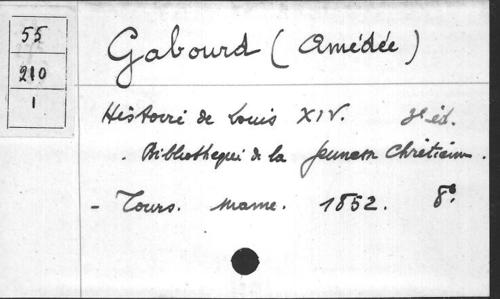 55
210
1
Gabourd (Amédée)
Histoire de Louis XIV. 3e éd.
. Bibliothèque de la Jeunesse Chrétienne.
- Tours. Mame. 1852. 8°.